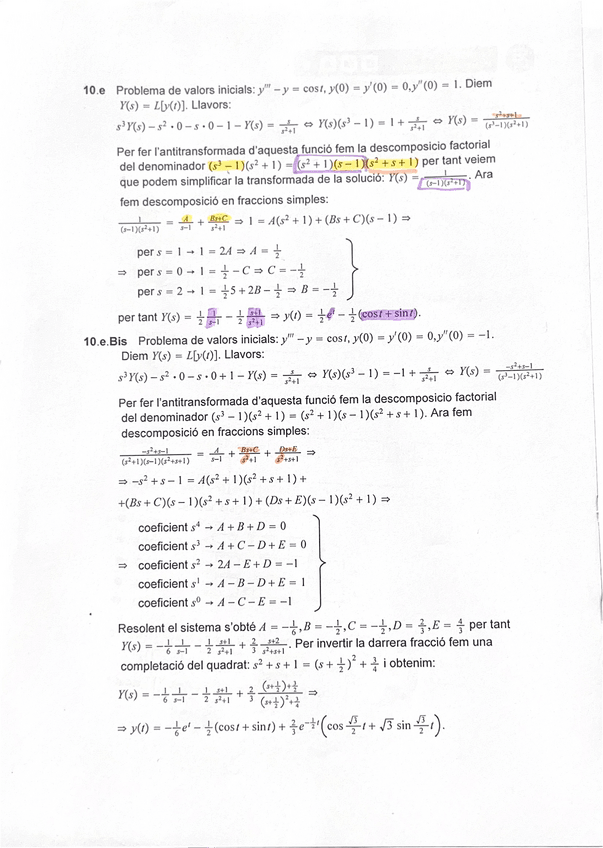 10.e Problema de valors inicials: y′′′ − y = cos t, y(0) = y′(0) = 0, y′′(0) = 1. Diem
Y(s) = L[y(t)]. Llavors:
s³Y(s) − s² • 0 − s • 0 − 1 − Y(s) = s/(s²+1) ⇔ Y(s)(s³ − 1) = 1 + s/(s²+1) ⇔ Y(s) = (s²+s+1)/((s³−1)(s²+1))
Per fer l'antitransformada d'aquesta funció fem la descomposicio factorial
del denominador (s³ − 1)(s² + 1) = (s² + 1)(s − 1)(s² + s + 1) per tant veiem
que podem simplificar la transformada de la solució: Y(s) = 1/((s−1)(s²+1)). Ara
fem descomposició en fraccions simples:
1/((s−1)(s²+1)) = A/(s−1) + (Bs+C)/(s²+1) ⇒ 1 = A(s² + 1) + (Bs + C)(s − 1) ⇒
per s = 1 → 1 = 2A ⇒ A = 1/2
⇒ per s = 0 → 1 = 1/2 − C ⇒ C = −1/2
per s = 2 → 1 = 1/2 5 + 2B − 1/2 ⇒ B = −1/2
per tant Y(s) = 1/2 1/(s−1) − 1/2 (s+1)/(s²+1) ⇒ y(t) = 1/2 eᵗ − 1/2 (cos t + sin t).
10.e.Bis Problema de valors inicials: y′′′ − y = cos t, y(0) = y′(0) = 0, y′′(0) = −1.
Diem Y(s) = L[y(t)]. Llavors:
s³Y(s) − s² • 0 − s • 0 + 1 − Y(s) = s/(s²+1) ⇔ Y(s)(s³ − 1) = −1 + s/(s²+1) ⇔ Y(s) = (−s²+s−1)/((s³−1)(s²+1))
Per fer l'antitransformada d'aquesta funció fem la descomposicio factorial
del denominador (s³ − 1)(s² + 1) = (s² + 1)(s − 1)(s² + s + 1). Ara fem
descomposició en fraccions simples:
(−s²+s−1)/((s²+1)(s−1)(s²+s+1)) = A/(s−1) + (Bs+C)/(s²+1) + (Ds+E)/(s²+s+1) ⇒
⇒ −s² + s − 1 = A(s² + 1)(s² + s + 1) +
+(Bs + C)(s − 1)(s² + s + 1) + (Ds + E)(s − 1)(s² + 1) ⇒
coeficient s⁴ → A + B + D = 0
coeficient s³ → A + C − D + E = 0
⇒ coeficient s² → 2A − E + D = −1
coeficient s¹ → A − B − D + E = 1
coeficient s⁰ → A − C − E = −1
Resolent el sistema s'obté A = −1/6, B = −1/2, C = −1/2, D = 2/3, E = 4/3 per tant
Y(s) = −1/6 1/(s−1) − 1/2 (s+1)/(s²+1) + 2/3 (s+2)/(s²+s+1). Per invertir la darrera fracció fem una
completació del quadrat: s² + s + 1 = (s + 1/2)² + 3/4 i obtenim:
Y(s) = −1/6 1/(s−1) − 1/2 (s+1)/(s²+1) + 2/3 ((s+1/2)+3/2)/((s+1/2)²+3/4) ⇒
⇒ y(t) = −1/6 eᵗ − 1/2 (cos t + sin t) + 2/3 e^(−1/2 t) (cos √3/2 t + √3 sin √3/2 t).